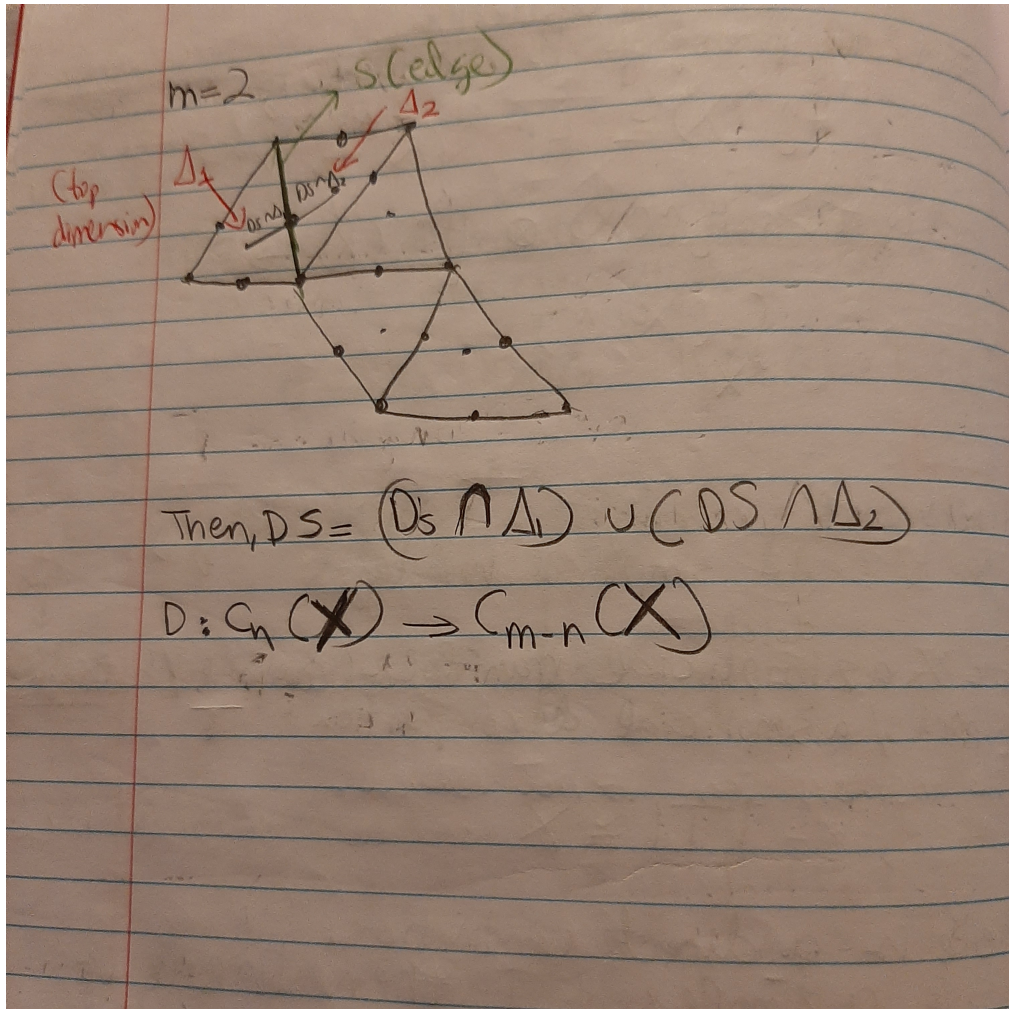 S (edge)
m=2
Δ2
Δ1
(top
dimension)
DS∩Δ2
DS∩Δ1
Then, DS = (DS ∩ Δ1) ∪ (DS ∩ Δ2)
D: Cn (X) → Cm-n (X)